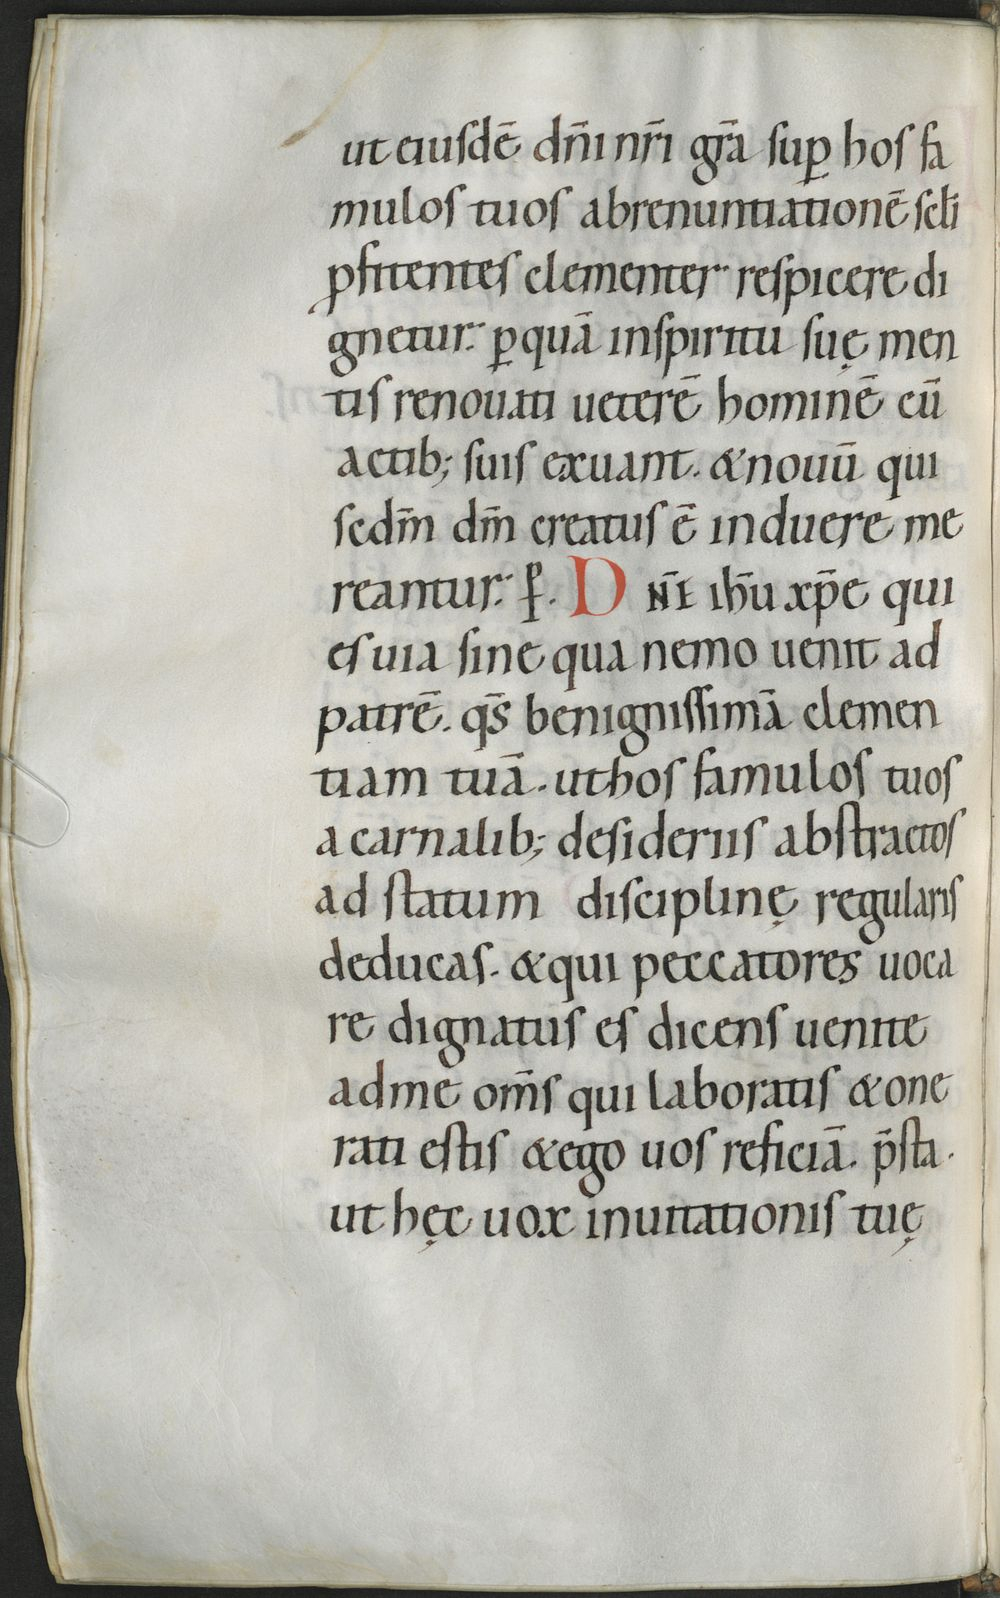 ut eiusdē dn̄i nr̄i gr̄a sup̲ hos fa
mulos tuos abrenuntiationē scl̄i
ꝓfitentes clementer respicere di
gnetur. ꝑ quā in spiritu suę men
tis renouati ueterē hominē cū
actib; suis exuant. & nouū qui
scdm̄ dm̄ creatus ē induere me
reantur. ꝑ. DN̄E ih̄u xp̄e qui
es uia sine qua nemo uenit ad
patrē. qs̄ benignissimā clemen
tiam tuā. ut hos famulos tuos
a carnalib; desideriis abstractos
ad statum disciplinę regularis
deducas. & qui peccatores uoca
re dignatus es dicens uenite
ad me om̄s qui laboratis & one
rati estis & ego uos reficiā. p̄sta.
ut hęc uox inuitationis tuę